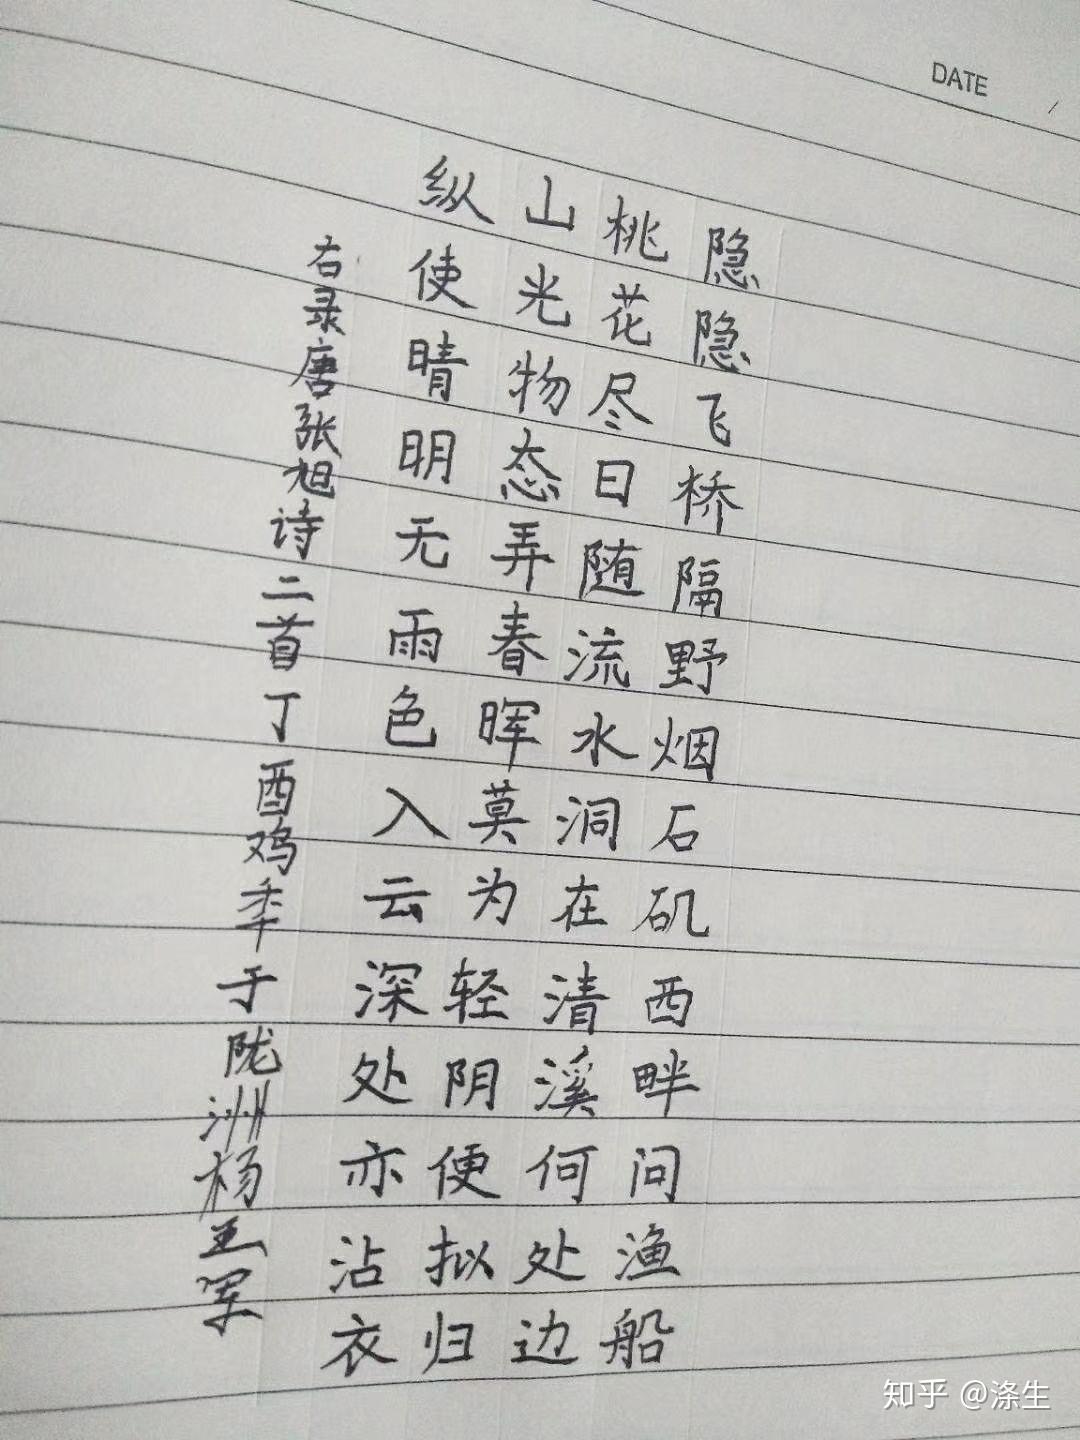 DATE
隐隐飞桥隔野烟石矶西畔问渔船
桃花尽日随流水洞在清溪何处边
山光物态弄春晖莫为轻阴便拟归
纵使晴明无雨色入云深处亦沾衣
右录唐张旭诗二首丁酉鸡秊于陇洲杨玉军
知乎 @涤生